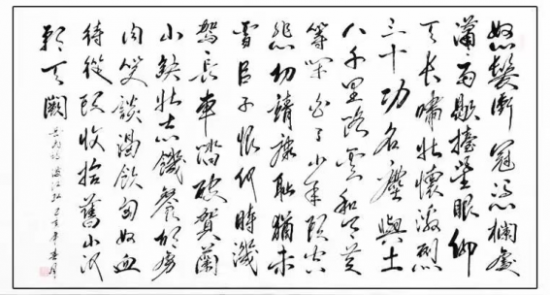 怒髮衝冠憑欄處
瀟雨歇擡望眼仰
天長嘯壯懷激烈
三十功名塵與土
八千里路雲和月莫
等閒白了少年頭空
悲切靖康恥猶未
雪臣子恨何時滅
駕長車踏破賀蘭
山缺壯志饑餐胡虜
肉笑談渴飲匈奴血
待從頭收拾舊山河
朝天闕
岳飛詞滿江紅